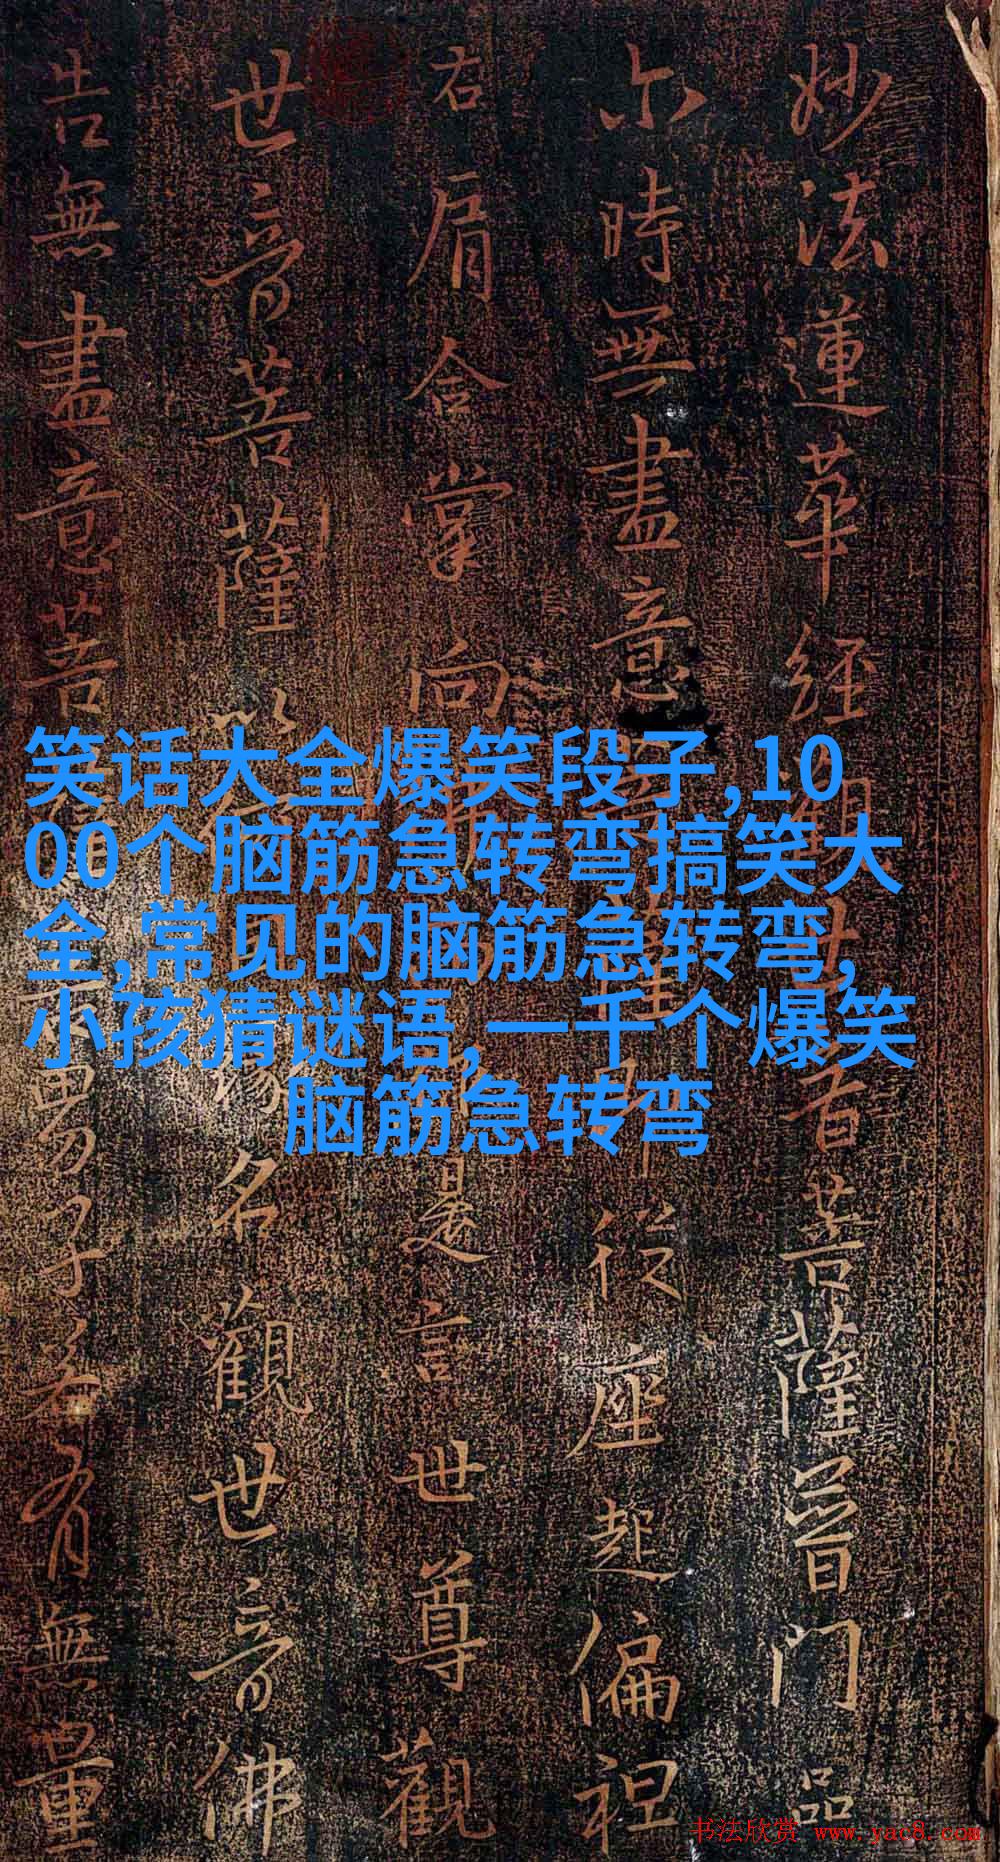 妙法蓮華經觀世音菩薩普門品
尒時無盡意菩薩即從座起偏袒
右肩合掌向是言世尊觀
世音菩薩以何緣名觀世音佛
告無盡意菩男子若有無量
笑话大全爆笑段子,10
00个脑筋急转弯搞笑大
全,常见的脑筋急转弯,
小孩猜谜语,一千个爆笑
脑筋急转弯
书法欣赏 www.yac8.com